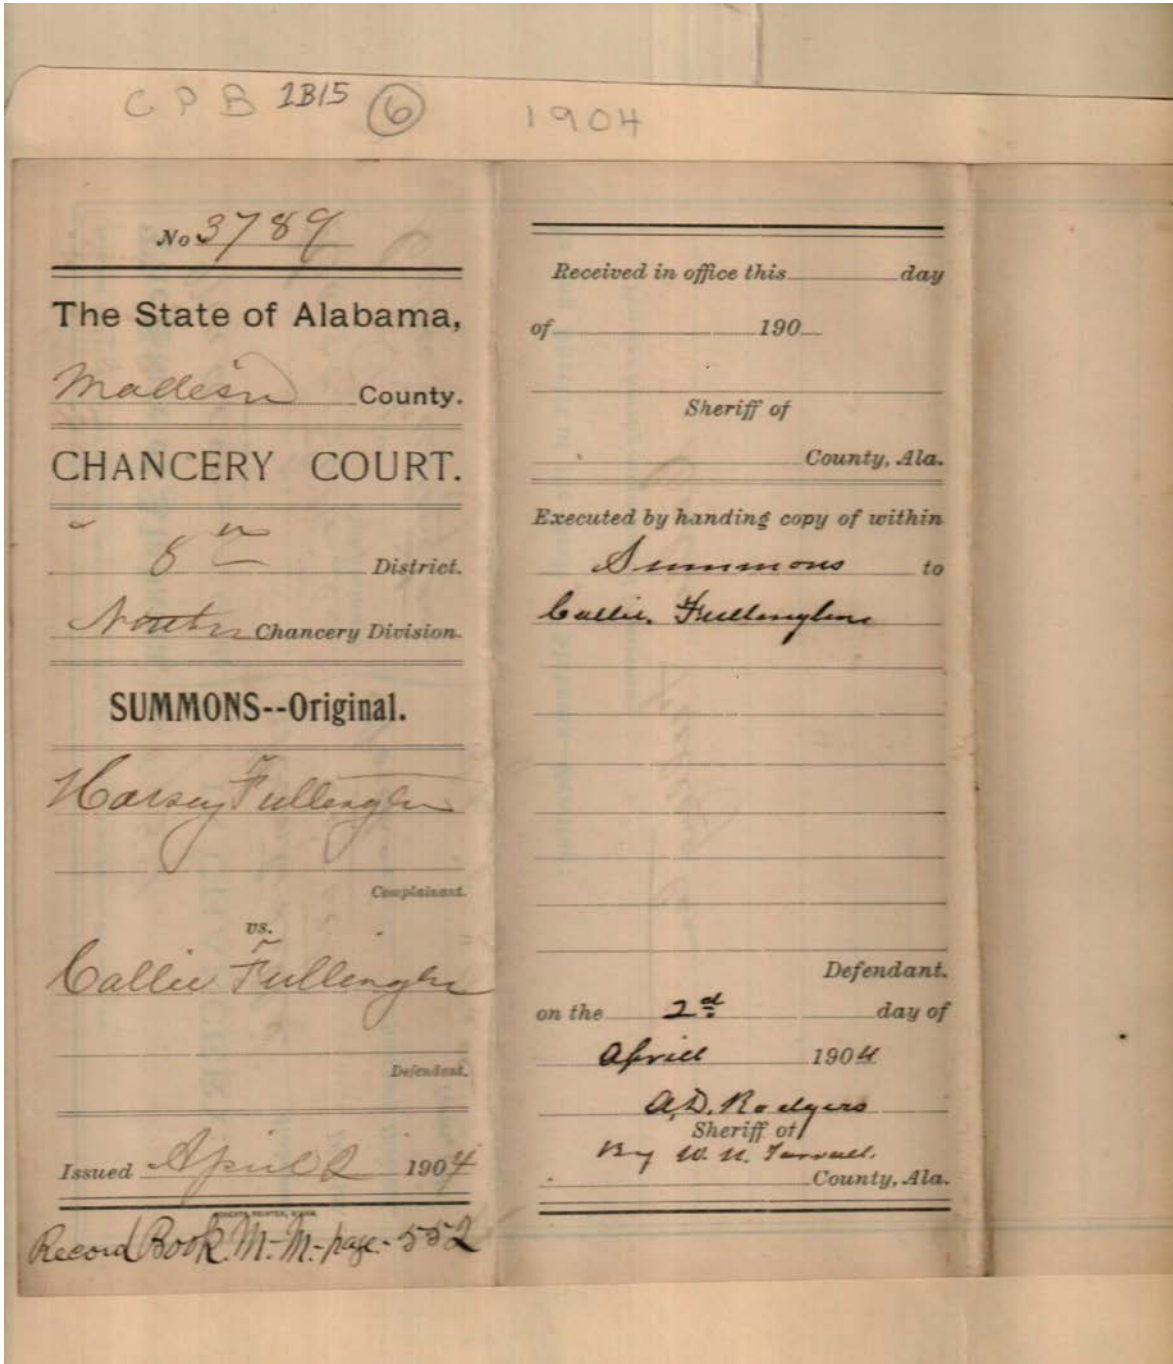 CPB 1B15 6 1904
No 3789
The State of Alabama,
Madison County.
CHANCERY COURT.
8th District.
Chancery Division.
SUMMONS--Original.
Harvey Fullington
Complainant.
vs.
Callie Fullington
Defendant.
Issued April 2 1904
Record Book. M.-M.-page.-552
Received in office this day
of 190
Sheriff of
County, Ala.
Executed by handing copy of within
Summons to
Callie. Fullington
Defendant.
on the 2d day of
Aprill 1904
A.D. Rodgers
Sheriff of
By W. N.
County, Ala.